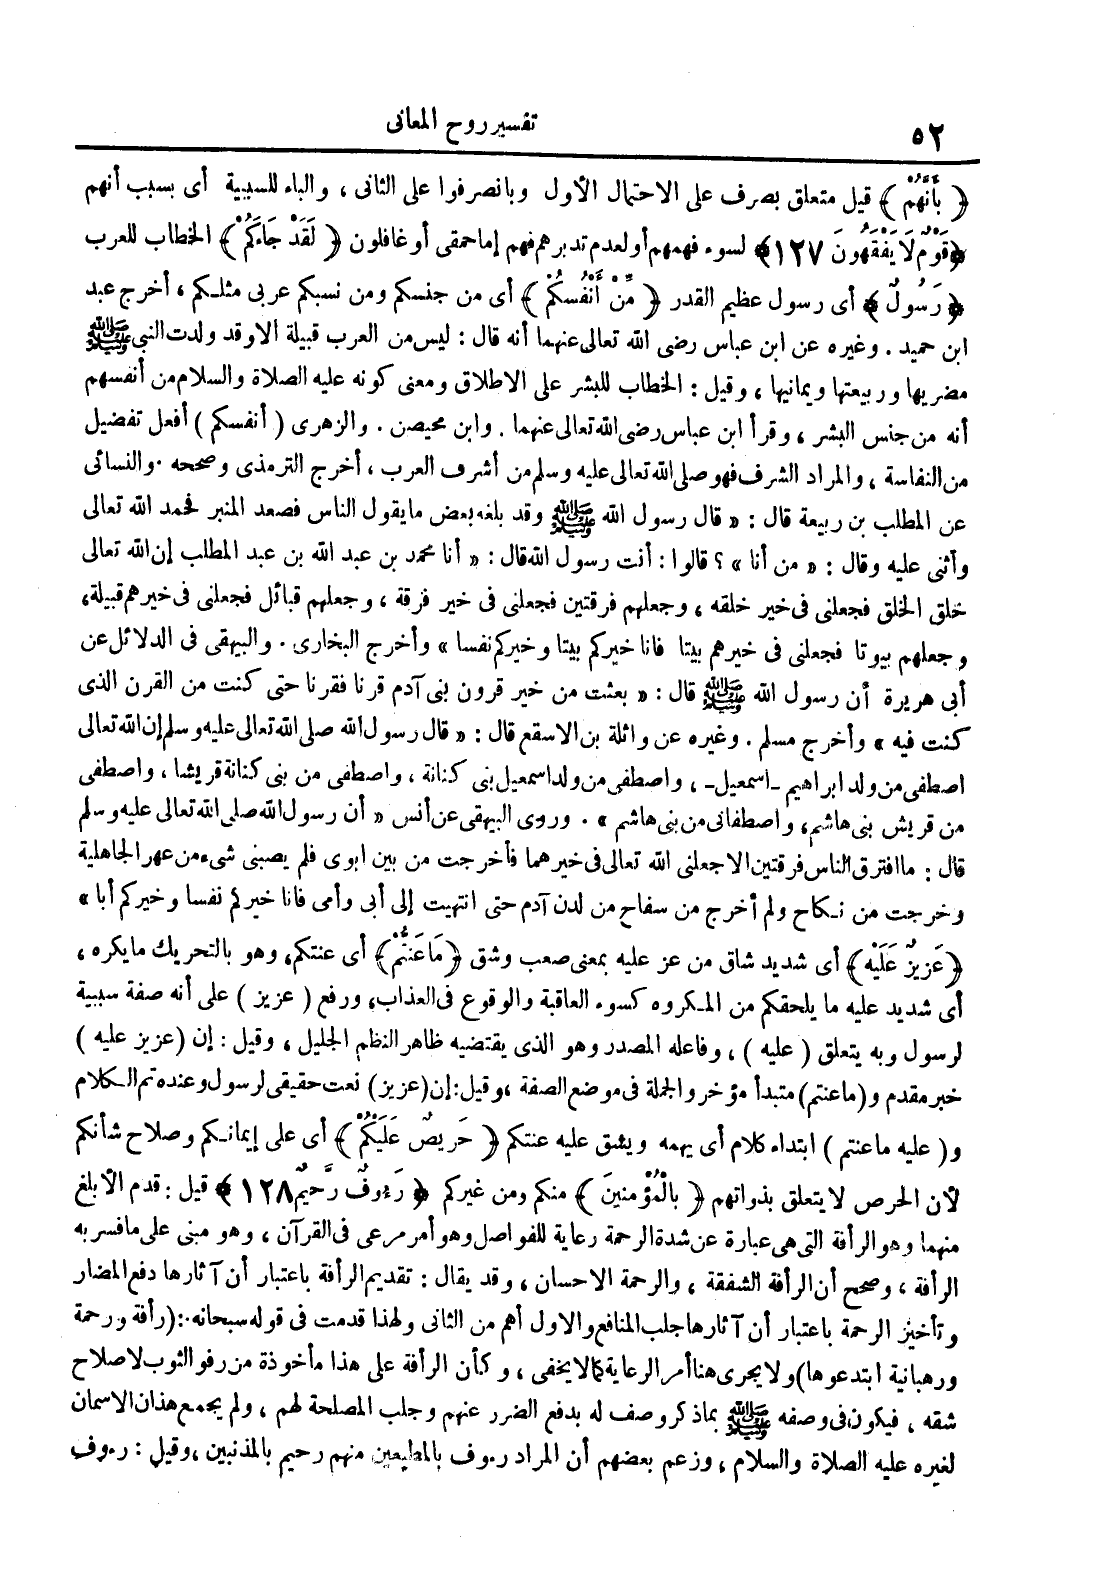 ٥٢
تفسير روح المعانى
﴿ بِأَنَّهُمْ ﴾ قيل متعلق بصرف على الاحتمال الأول وبانصرفوا على الثانى ، والباء للسببية أى بسبب أنهم
﴿ قَوْمٌ لَا يَفْقَهُونَ ١٢٧ ﴾ لسوء فهمهم أو لعدم تدبرهم فهم إما حمقى أو غافلون ﴿ لَقَدْ جَاءَكُمْ ﴾ الخطاب للعرب
﴿ رَسُولٌ ﴾ أى رسول عظيم القدر ﴿ مِّنْ أَنْفُسِكُمْ ﴾ أى من جنسكم ومن نسبكم عربى مثلكم ، أخرج عبد
ابن حميد . وغيره عن ابن عباس رضى الله تعالى عنهما أنه قال : ليس من العرب قبيلة الا وقد ولدت النبى ﷺ
مضريها وربيعتها ويمانيها ، وقيل : الخطاب للبشر على الاطلاق ومعنى كونه عليه الصلاة والسلام من أنفسهم
أنه من جنس البشر ، وقرأ ابن عباس رضى الله تعالى عنهما . وابن محيصن . والزهرى ( أنفسكم ) أفعل تفضيل
من النفاسة ، والمراد الشرف فهو صلى الله تعالى عليه وسلم من أشرف العرب ، أخرج الترمذى وصححه . والنسائى
عن المطلب بن ربيعة قال : « قال رسول الله ﷺ وقد بلغه بعض ما يقول الناس فصعد المنبر فحمد الله تعالى
وأثنى عليه وقال : « من أنا » ؟ قالوا : أنت رسول الله قال : « أنا محمد بن عبد الله بن عبد المطلب إن الله تعالى
خلق الخلق فجعلنى فى خير خلقه ، وجعلهم فرقتين فجعلنى فى خير فرقة ، وجعلهم قبائل فجعلنى فى خيرهم قبيلة ،
وجعلهم بيوتا فجعلنى فى خيرهم بيتا فانا خيركم بيتا وخيركم نفسا » وأخرج البخارى . والبيهقى فى الدلائل عن
أبى هريرة أن رسول الله ﷺ قال : « بعثت من خير قرون بنى آدم قرنا فقرنا حتى كنت من القرن الذى
كنت فيه » وأخرج مسلم . وغيره عن واثلة بن الاسقع قال : « قال رسول الله صلى الله تعالى عليه وسلم إن الله تعالى
اصطفى من ولد ابراهيم ـ اسمعيل ـ ، واصطفى من ولد اسمعيل بنى كنانة ، واصطفى من بنى كنانة قريشا ، واصطفى
من قريش بنى هاشم ، واصطفانى من بنى هاشم » . وروى البيهقى عن أنس « أن رسول الله صلى الله تعالى عليه وسلم
قال : ما افترق الناس فرقتين الا جعلنى الله تعالى فى خيرهما فأخرجت من بين ابوى فلم يصبنى شىء من عهر الجاهلية
وخرجت من نكاح ولم أخرج من سفاح من لدن آدم حتى انتهيت إلى أبى وأمى فانا خيركم نفسا وخيركم أبا »
﴿ عَزِيزٌ عَلَيْهِ ﴾ أى شديد شاق من عز عليه بمعنى صعب وشق ﴿ مَا عَنِتُّمْ ﴾ أى عنتكم ، وهو بالتحريك ما يكره ،
أى شديد عليه ما يلحقكم من المكروه كسوء العاقبة والوقوع فى العذاب ، ورفع ( عزيز ) على أنه صفة سببية
لرسول وبه يتعلق ( عليه ) ، وفاعله المصدر وهو الذى يقتضيه ظاهر النظم الجليل ، وقيل : إن ( عزيز عليه )
خبر مقدم و ( ما عنتم ) متبدأ مؤخر والجملة فى موضع الصفة ، وقيل : إن ( عزيز ) نعت حقيقى لرسول وعنده تم الكلام
و ( عليه ما عنتم ) ابتداء كلام أى يهمه ويشق عليه عنتكم ﴿ حَرِيصٌ عَلَيْكُمْ ﴾ أى على إيمانكم وصلاح شأنكم
لأن الحرص لا يتعلق بذواتهم ﴿ بِالْمُؤْمِنِينَ ﴾ منكم ومن غيركم ﴿ رَءُوفٌ رَّحِيمٌ ١٢٨ ﴾ قيل : قدم الأبلغ
منهما وهو الرأفة التى هى عبارة عن شدة الرحمة رعاية للفواصل وهو أمر مرعى فى القرآن ، وهو مبنى على ما فسر به
الرأفة ، وصحح أن الرأفة الشفقة ، والرحمة الاحسان ، وقد يقال : تقديم الرأفة باعتبار أن آثارها دفع المضار
وتأخير الرحمة باعتبار أن آثارها جلب المنافع والاول أهم من الثانى ولهذا قدمت فى قوله سبحانه : ( رأفة ورحمة
ورهبانية ابتدعوها ) ولا يجرى هنا أمر الرعاية كما لا يخفى ، وكأن الرأفة على هذا مأخوذة من رفو الثوب لاصلاح
شقه ، فيكون فى وصفه ﷺ بما ذكر وصف له بدفع الضرر عنهم وجلب المصلحة لهم ، ولم يجمع هذان الاسمان
لغيره عليه الصلاة والسلام ، وزعم بعضهم أن المراد رءوف بالمطيعين منهم رحيم بالمذنبين ، وقيل : رءوف